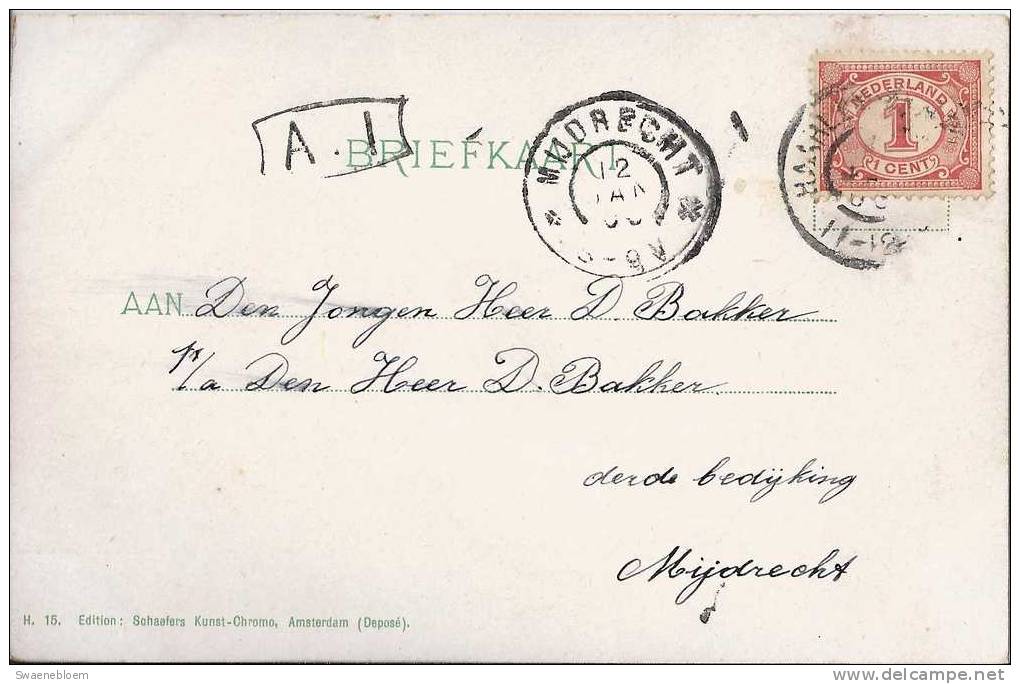 NEDERLAND
1
1 CENT
11-12
A. I
BRIEFKAART
MIJDRECHT
12
JAN
8-9V
AAN Den Jongen Heer D. Bakker
p/a Den Heer D. Bakker
derde bedijking
Mijdrecht
H. 15. Edition: Schaefers Kunst-Chromo, Amsterdam (Deposé).
Swaenebloem
www.delcampe.net